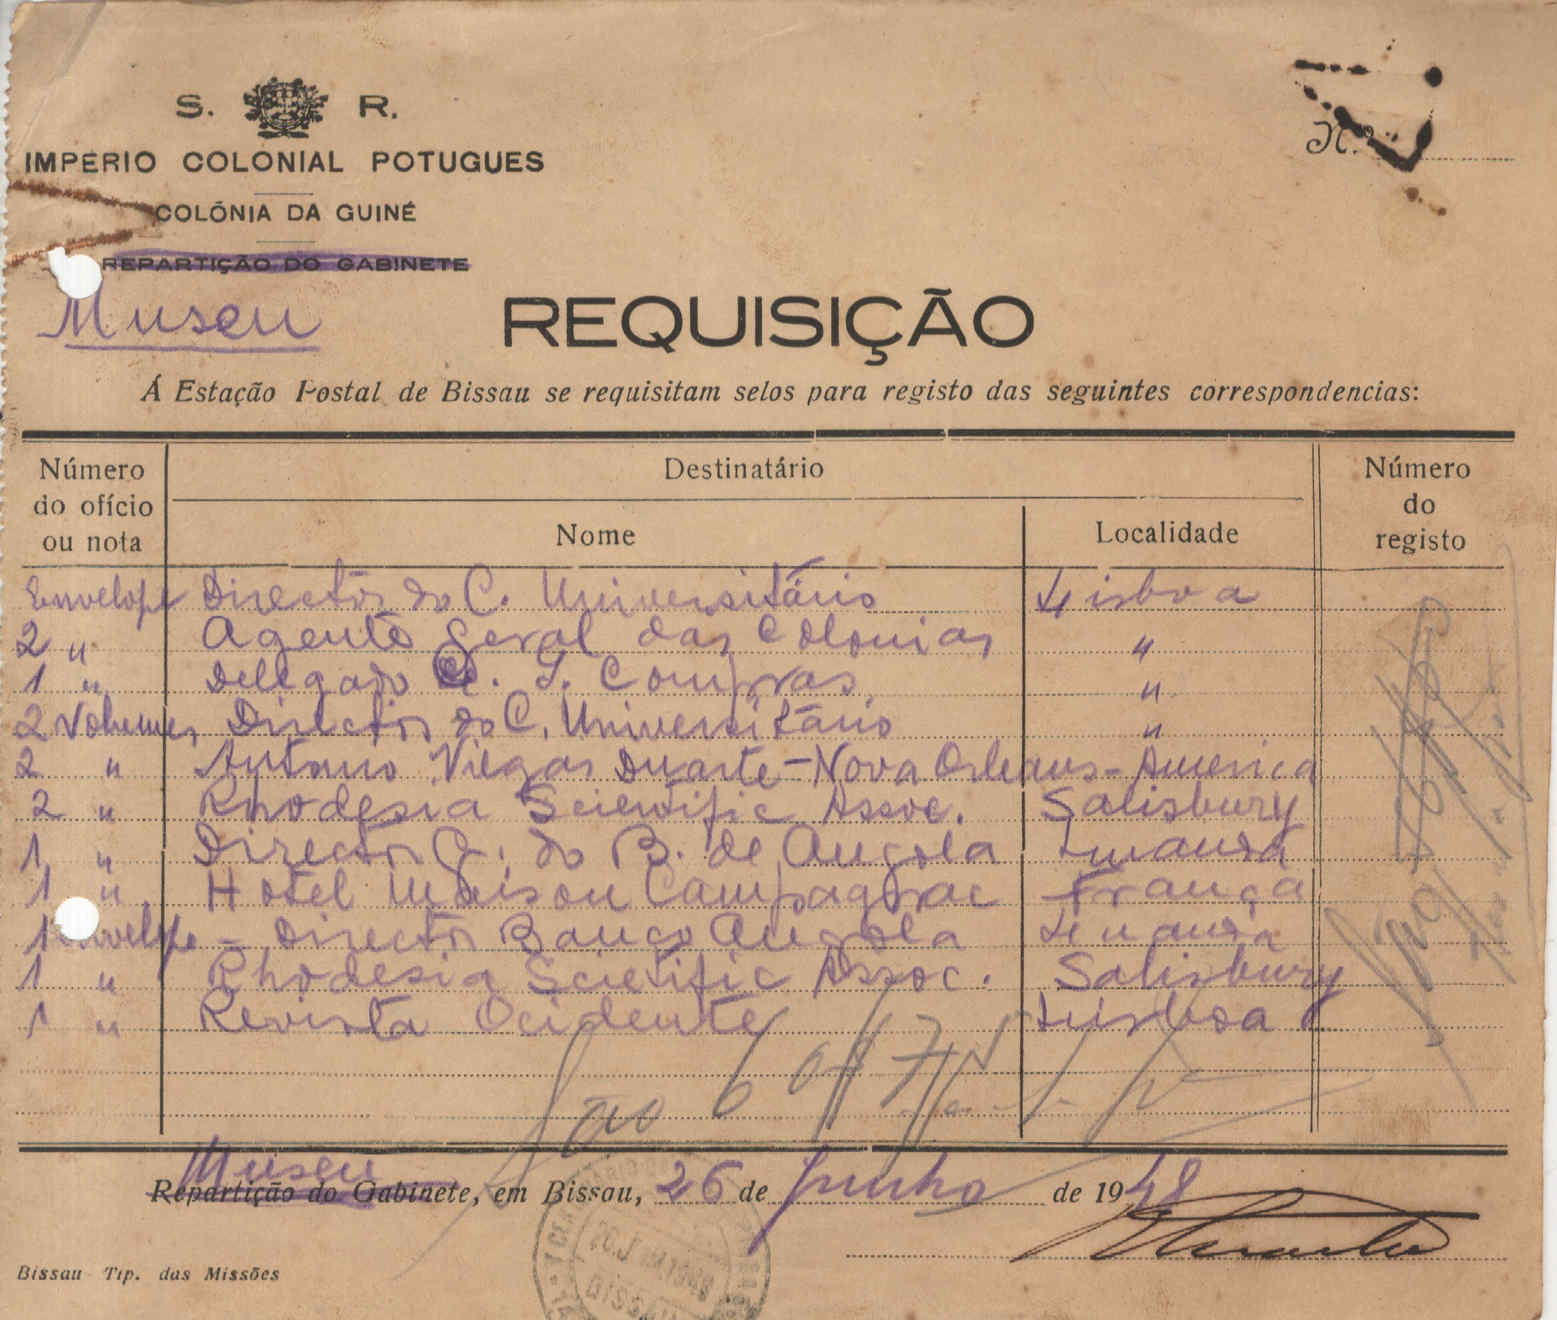 S. R.
IMPÉRIO COLONIAL POTUGUES
COLÓNIA DA GUINÉ
REPARTIÇÃO DO GABINETE
Museu
N.º
REQUISIÇÃO
Á Estação Postal de Bissau se requisitam selos para registo das seguintes correspondencias:
Número do ofício ou nota
Destinatário
Nome
Localidade
Número do registo
Envelope Director do C. Universitário Lisboa
2 " Agente Geral das Colonias "
1 " Delegado C. Compras "
2 Volumes Director do C. Universitário "
2 " António Viegas Duarte - Nova Orleans - America
2 " Rhodesia Scientific Assoc. Salisbury
1 " Director G. do B. de Angola Luanda
1 " Hotel Maison Campagnac França
1 Envelope - Director Banco Angola Luanda
1 " Rhodesia Scientific Assoc. Salisbury
1 " Revista Ocidente Lisboa
São
Museu
Repartição do Gabinete, em Bissau, 26 de Junho de 1948
BISSAU
Bissau Tip. das Missões